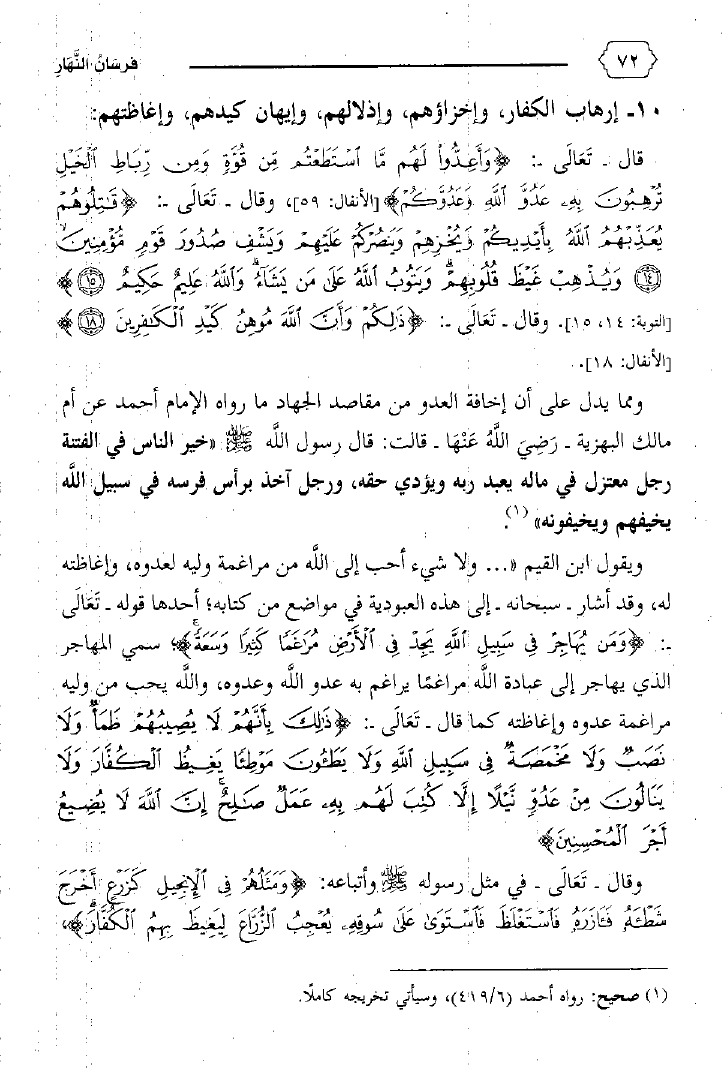 ٧٢ فرسان النَّهَار
١٠ـ إرهاب الكفار، وإخزاؤهم، وإذلالهم، وإيهان كيدهم، وإغاظتهم:
قال ـ تَعَالَى ـ: ﴿وَأَعِدُّوا۟ لَهُم مَّا ٱسْتَطَعْتُم مِّن قُوَّةٍ وَمِن رِّبَاطِ ٱلْخَيْلِ
تُرْهِبُونَ بِهِۦ عَدُوَّ ٱللَّهِ وَعَدُوَّكُمْ﴾ [الأنفال: ٥٩]، وقال ـ تَعَالَى ـ: ﴿قَٰتِلُوهُمْ
يُعَذِّبْهُمُ ٱللَّهُ بِأَيْدِيكُمْ وَيُخْزِهِمْ وَيَنصُرْكُمْ عَلَيْهِمْ وَيَشْفِ صُدُورَ قَوْمٍ مُّؤْمِنِينَ
﴿١٤﴾ وَيُذْهِبْ غَيْظَ قُلُوبِهِمْ ۗ وَيَتُوبُ ٱللَّهُ عَلَىٰ مَن يَشَآءُ ۗ وَٱللَّهُ عَلِيمٌ حَكِيمٌ ﴿١٥﴾﴾
[التوبة: ١٤، ١٥]. وقال ـ تَعَالَى ـ: ﴿ذَٰلِكُمْ وَأَنَّ ٱللَّهَ مُوهِنُ كَيْدِ ٱلْكَٰفِرِينَ ﴿١٨﴾﴾
[الأنفال: ١٨].
ومما يدل على أن إخافة العدو من مقاصد الجهاد ما رواه الإمام أحمد عن أم
مالك البهزية ـ رَضِيَ اللَّهُ عَنْهَا ـ قالت: قال رسول اللَّه ﷺ «خير الناس في الفتنة
رجل معتزل في ماله يعبد ربه ويؤدي حقه، ورجل آخذ برأس فرسه في سبيل اللَّه
يخيفهم ويخيفونه»(١).
ويقول ابن القيم «... ولا شيء أحب إلى اللَّه من مراغمة وليه لعدوه، وإغاظته
له، وقد أشار ـ سبحانه ـ إلى هذه العبودية في مواضع من كتابه؛ أحدها قوله ـ تَعَالَى
ـ: ﴿وَمَن يُهَاجِرْ فِى سَبِيلِ ٱللَّهِ يَجِدْ فِى ٱلْأَرْضِ مُرَٰغَمًا كَثِيرًا وَسَعَةً ۚ﴾، سمي المهاجر
الذي يهاجر إلى عبادة اللَّه مراغمًا يراغم به عدو اللَّه وعدوه، واللَّه يحب من وليه
مراغمة عدوه وإغاظته كما قال ـ تَعَالَى ـ: ﴿ذَٰلِكَ بِأَنَّهُمْ لَا يُصِيبُهُمْ ظَمَأٌ وَلَا
نَصَبٌ وَلَا مَخْمَصَةٌ فِى سَبِيلِ ٱللَّهِ وَلَا يَطَـُٔونَ مَوْطِئًا يَغِيظُ ٱلْكُفَّارَ وَلَا
يَنَالُونَ مِنْ عَدُوٍّ نَّيْلًا إِلَّا كُتِبَ لَهُم بِهِۦ عَمَلٌ صَٰلِحٌ ۚ إِنَّ ٱللَّهَ لَا يُضِيعُ
أَجْرَ ٱلْمُحْسِنِينَ﴾
وقال ـ تَعَالَى ـ في مثل رسوله ﷺ وأتباعه: ﴿وَمَثَلُهُمْ فِى ٱلْإِنجِيلِ كَزَرْعٍ أَخْرَجَ
شَطْـَٔهُۥ فَـَٔازَرَهُۥ فَٱسْتَغْلَظَ فَٱسْتَوَىٰ عَلَىٰ سُوقِهِۦ يُعْجِبُ ٱلزُّرَّاعَ لِيَغِيظَ بِهِمُ ٱلْكُفَّارَ ۗ﴾،
(١) صحيح: رواه أحمد (٤١٩/٦)، وسيأتي تخريجه كاملًا.